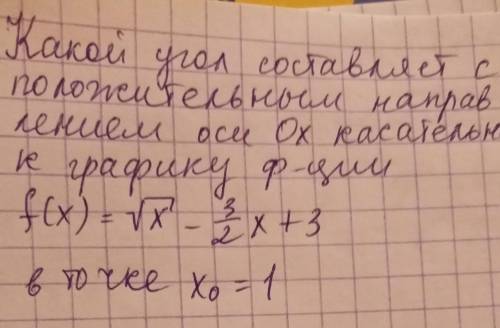 Какой угол составляет с
положительным направ
лением оси Ox касательн
к графику ф-ции
f(x) = √x - 3/2 x + 3
в точке x₀ = 1